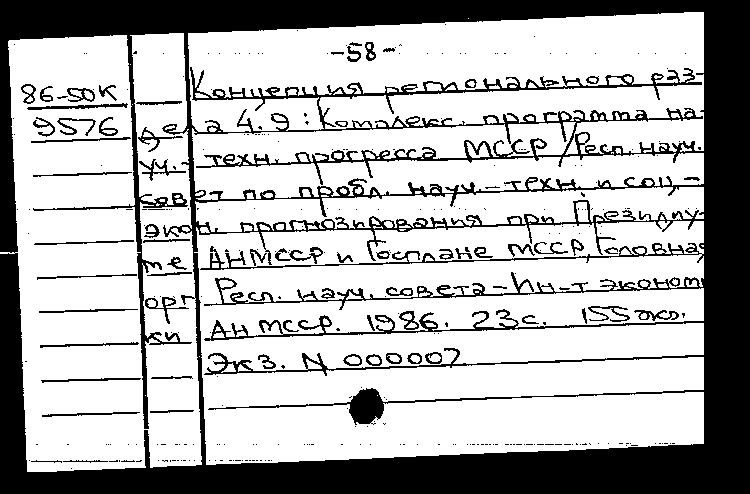 -58-
86-50К Концепция регионального раз-
9576 дела 4.9: Комплекс. программа на-
уч.- техн. прогресса МССР / Респ. науч.
совет по пробл. науч.-техн. и соц.-
экон. прогнозирования при Президиу-
ме АН МССР и Госплане МССР, Головная
орг Респ. науч. совета - Ин-т экономи
ки АН МССР. 1986. 23с. 155 экз.
Экз. N 000007